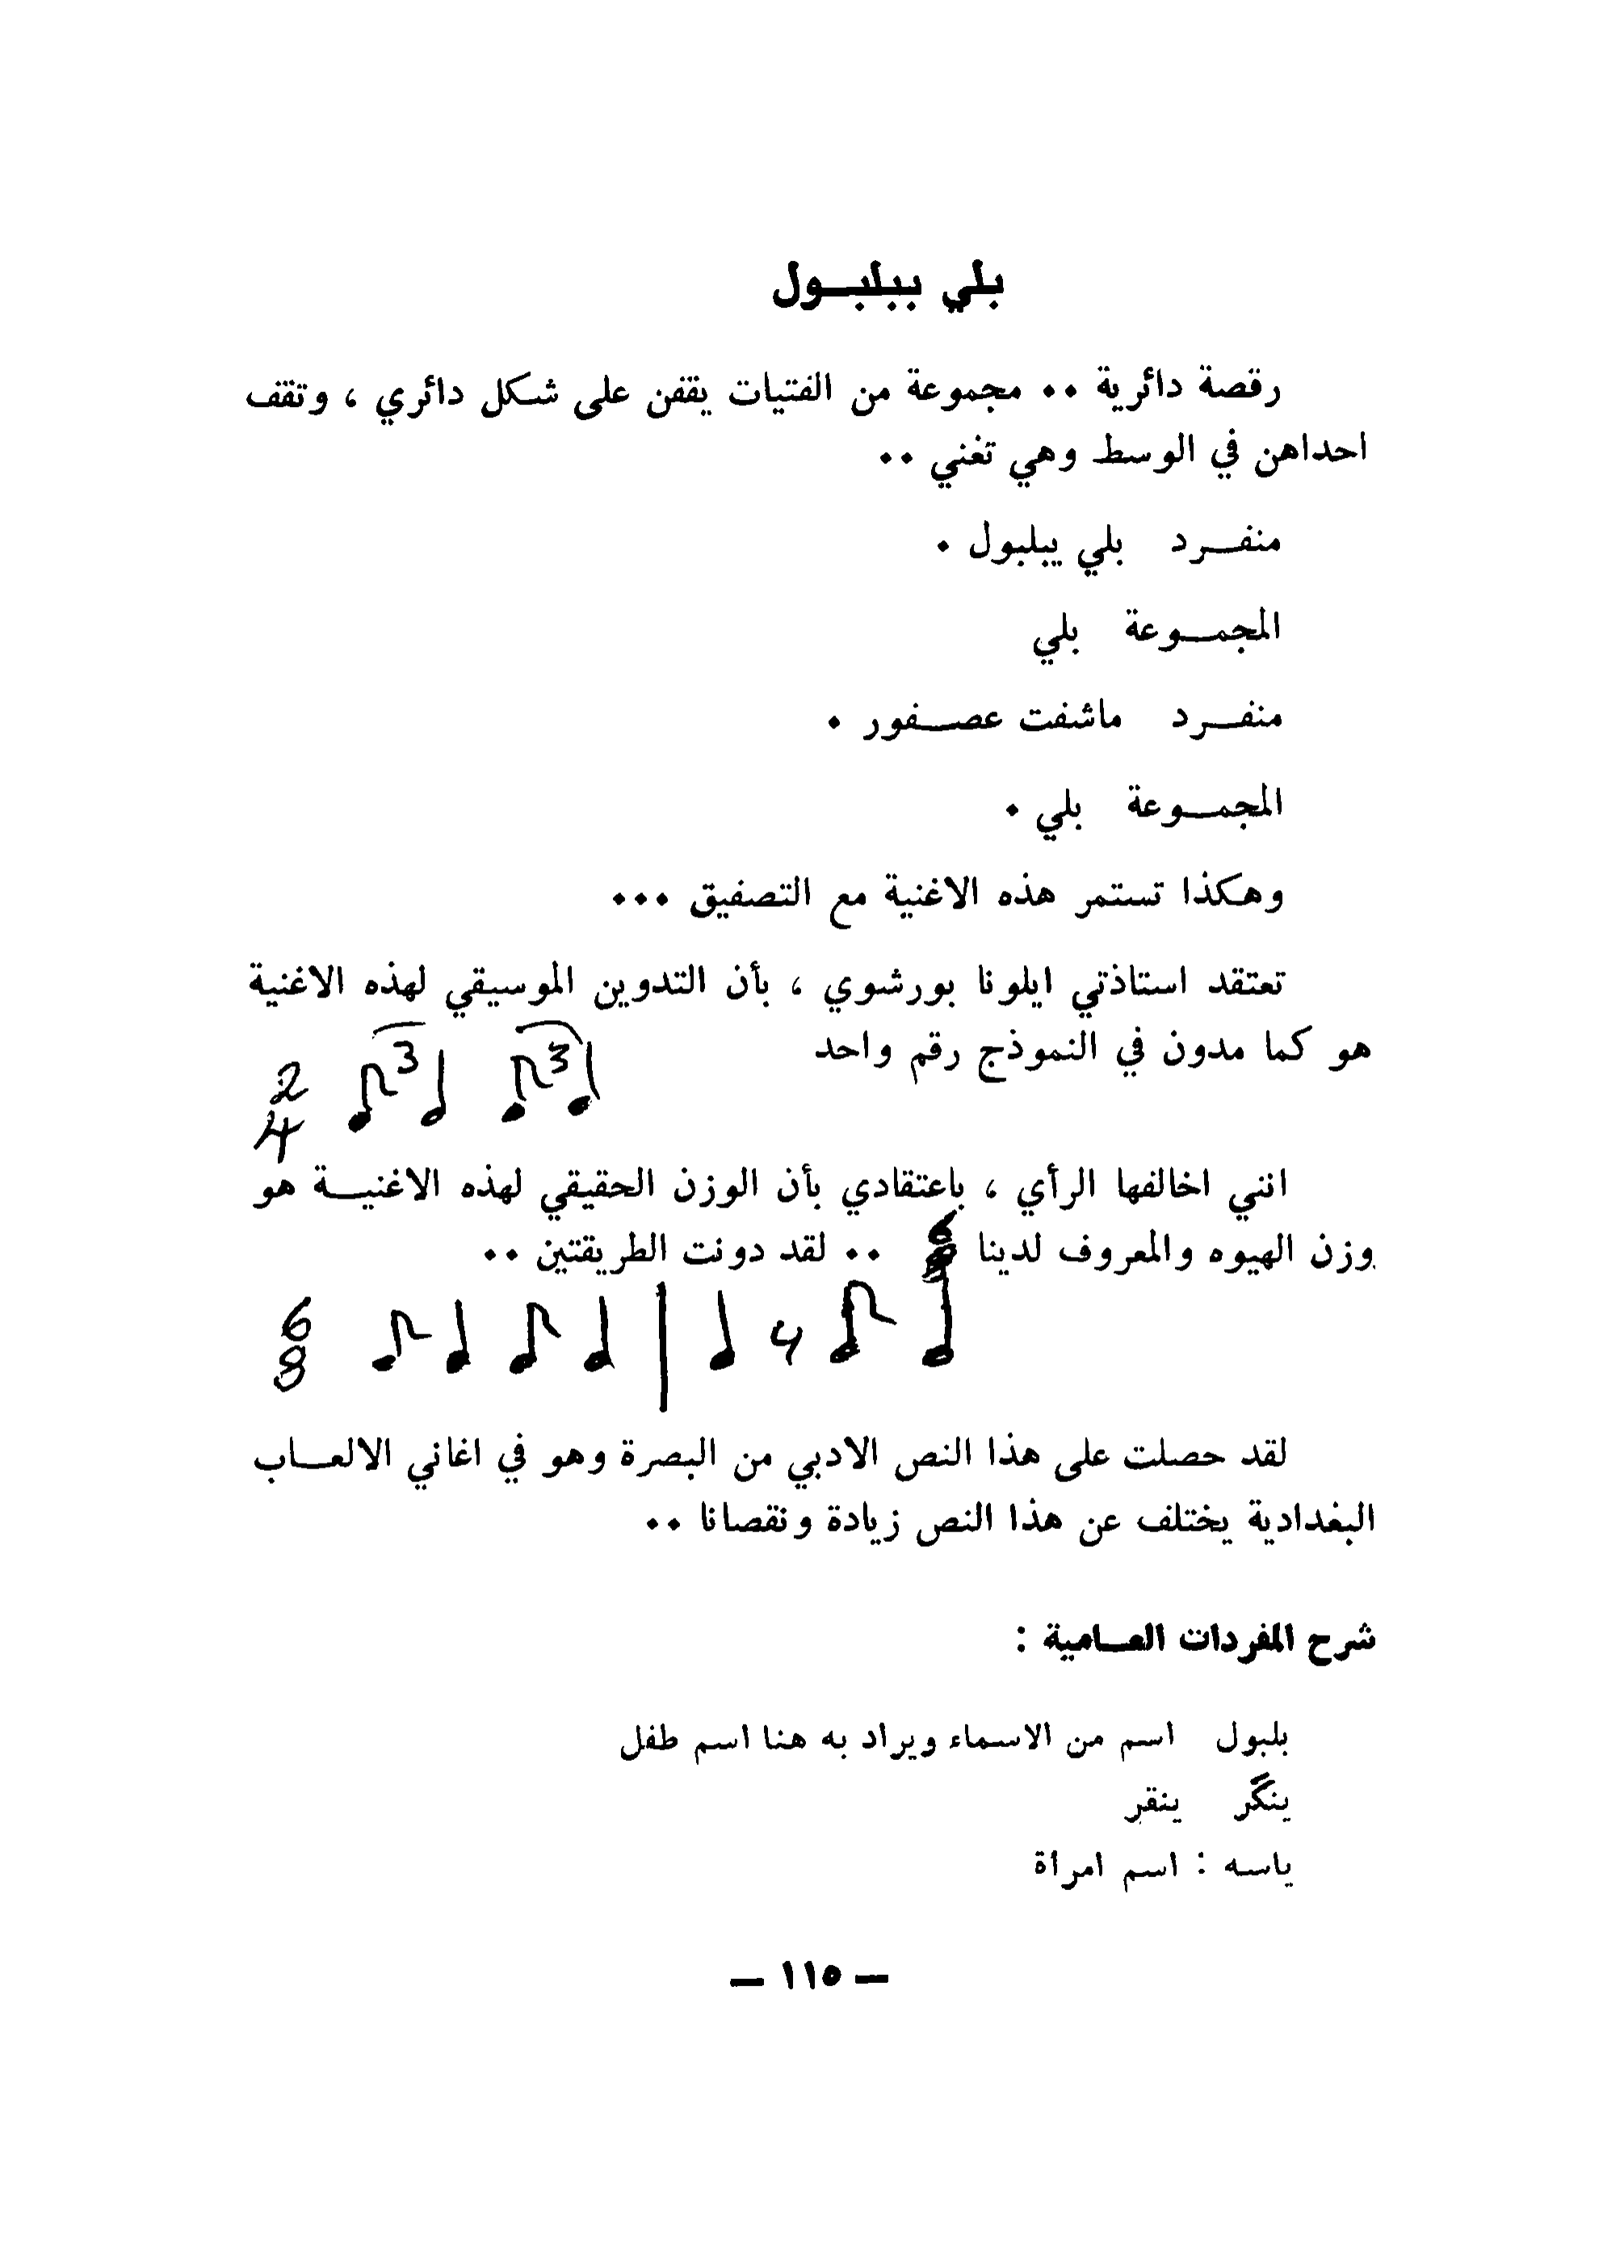 بلي ببلبـول
رقصة دائرية ٠٠ مجموعة من الفتيات يقفن على شكل دائري ، وتقف
احداهن في الوسط وهي تغني ٠٠
منفـرد بلي يبلبول ٠
المجمـوعة بلي
منفـرد ماشفت عصـفور ٠
المجمـوعة بلي ٠
وهكذا تستمر هذه الاغنية مع التصفيق ٠٠٠
تعتقد استاذتي ايلونا بورشوي ، بأن التدوين الموسيقي لهذه الاغنية
هو كما مدون في النموذج رقم واحد
2 3 3
4
انني اخالفها الرأي ، باعتقادي بأن الوزن الحقيقي لهذه الاغنيـة هو
وزن الهيوه والمعروف لدينا 6/8 ٠٠ لقد دونت الطريقتين ٠٠
6
8
لقد حصلت على هذا النص الادبي من البصرة وهو في اغاني الالعـاب
البغدادية يختلف عن هذا النص زيادة ونقصانا ٠٠
شرح المفردات العـامية :
بلبول اسم من الاسماء ويراد به هنا اسم طفل
ينگر ينقر
ياسه : اسم امرأة
— ١١٥ —